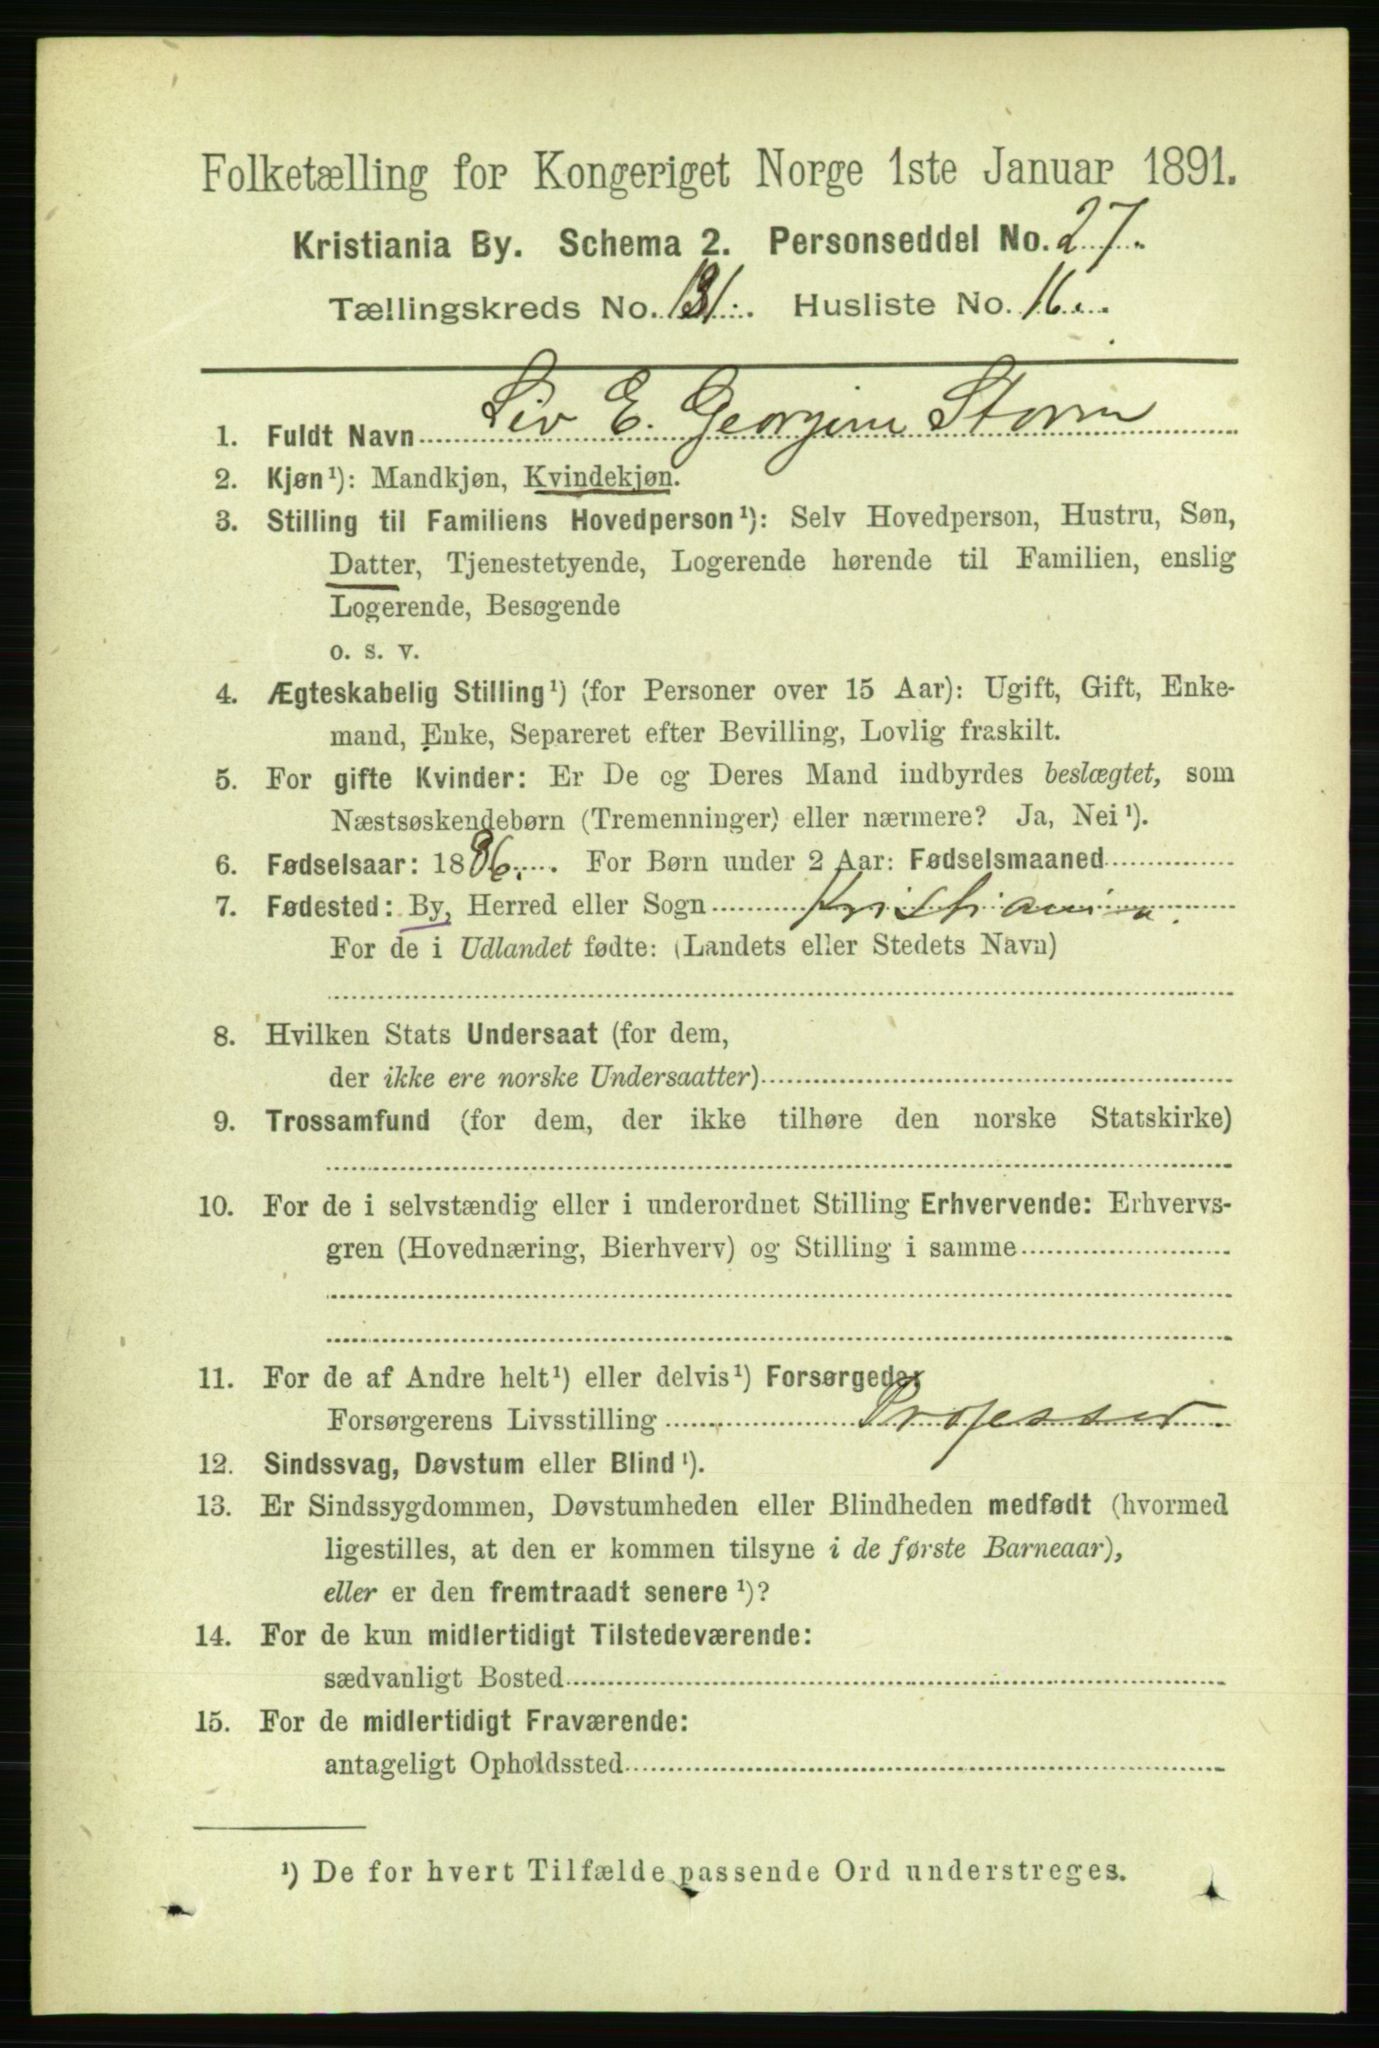 Folketælling for Kongeriget Norge 1ste Januar 1891.
Kristiania By. Schema 2. Personseddel No. 27.
Tællingskreds No. 131. Husliste No. 16.
1. Fuldt Navn Liv E. Georgine Storm
2. Kjøn¹): Mandkjøn, Kvindekjøn.
3. Stilling til Familiens Hovedperson¹): Selv Hovedperson, Hustru, Søn,
Datter, Tjenestetyende, Logerende hørende til Familien, enslig
Logerende, Besøgende
o. s. v.
4. Ægteskabelig Stilling¹) (for Personer over 15 Aar): Ugift, Gift, Enke-
mand, Enke, Separeret efter Bevilling, Lovlig fraskilt.
5. For gifte Kvinder: Er De og Deres Mand indbyrdes beslægtet, som
Næstsøskendebørn (Tremenninger) eller nærmere? Ja, Nei¹).
6. Fødselsaar: 1886. For Børn under 2 Aar: Fødselsmaaned
7. Fødested: By, Herred eller Sogn Kristiania.
For de i Udlandet fødte: (Landets eller Stedets Navn)
8. Hvilken Stats Undersaat (for dem,
der ikke ere norske Undersaatter)
9. Trossamfund (for dem, der ikke tilhøre den norske Statskirke)
10. For de i selvstændig eller i underordnet Stilling Erhvervende: Erhvervs-
gren (Hovednæring, Bierhverv) og Stilling i samme
11. For de af Andre helt¹) eller delvis¹) Forsørgede:
Forsørgerens Livsstilling Professor
12. Sindssvag, Døvstum eller Blind¹).
13. Er Sindssygdommen, Døvstumheden eller Blindheden medfødt (hvormed
ligestilles, at den er kommen tilsyne i de første Barneaar),
eller er den fremtraadt senere¹)?
14. For de kun midlertidigt Tilstedeværende:
sædvanligt Bosted
15. For de midlertidigt Fraværende:
antageligt Opholdssted
¹) De for hvert Tilfælde passende Ord understreges.